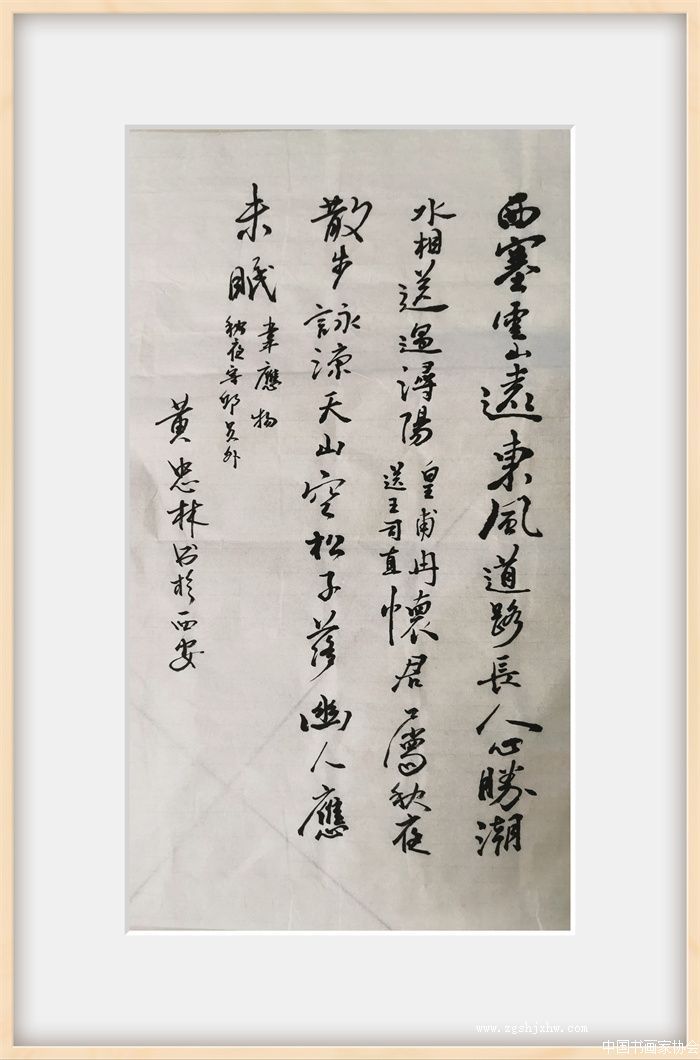 西塞雲山遠東風道路長人心勝潮
水相送過潯陽
皇甫冉
送王司直
懷君屬秋夜
散步詠涼天山空松子落幽人應
未眠
韋應物
秋夜寄邱員外
黄忠林书於西安
www.zgshjxhw.com
中国书画家协会